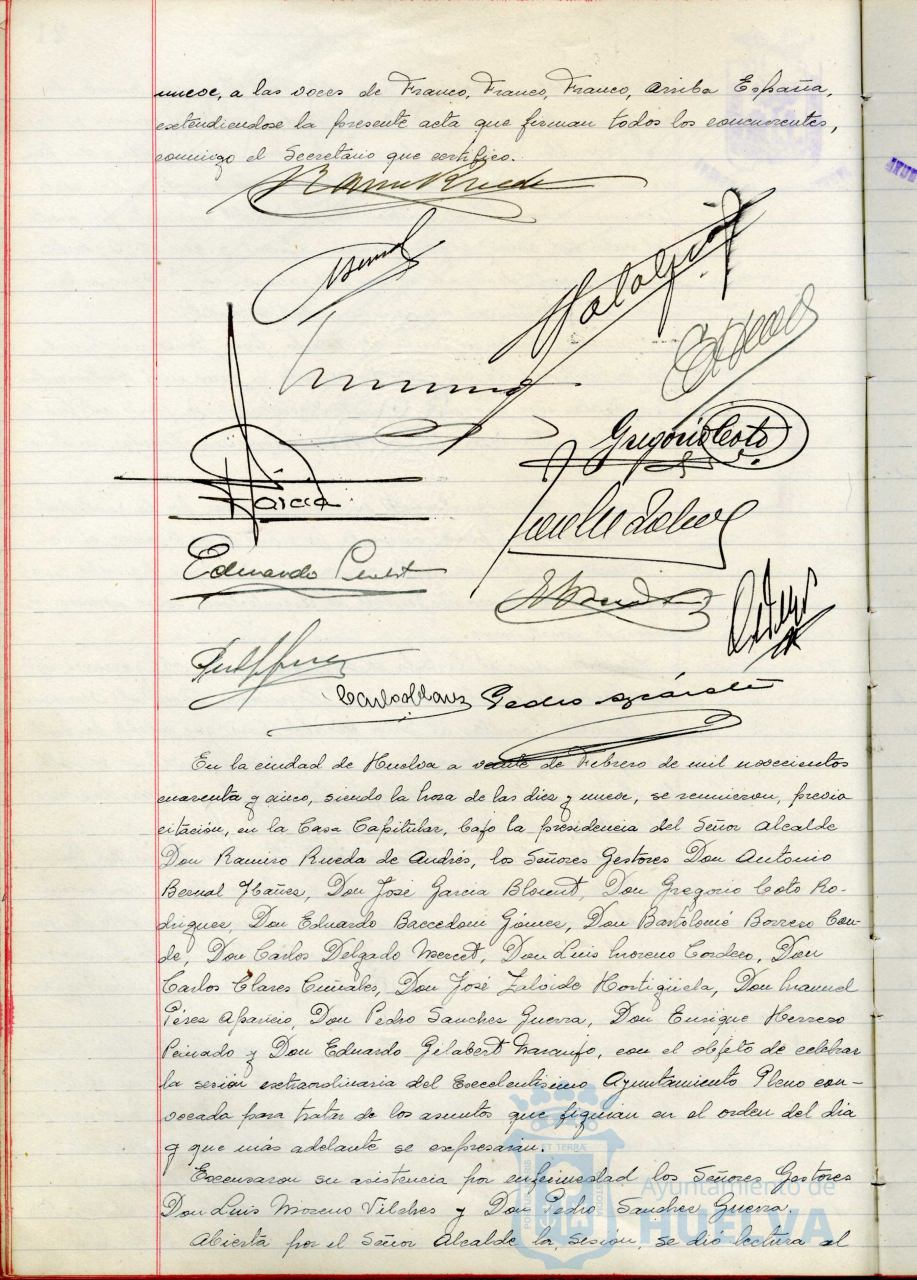 nueve, a las voces de Franco, Franco, Franco, Arriba España,
extendiendose la presente acta que firman todos los concurrentes,
conmigo el Secretario que certifico.
Ramiro Rueda
Bernal
García
Gregorio Coto
Eduardo
Carlos Clares Pedro
En la ciudad de Huelva a veinte de Febrero de mil novecientos
cuarenta y cinco, siendo la hora de las diez y nueve, se reunieron, previa
citación, en la Casa Capitular, bajo la presidencia del Señor Alcalde
Don Ramiro Rueda de Andrés, los Señores Gestores Don Antonio
Bernal Ybañez, Don José Garcia Don Gregorio Coto Ro-
driguez, Don Eduardo Baccedoni Gómez, Don Bartolomé Borrero Con-
de, Don Carlos Delgado Don Luis Moreno Cordero, Don
Carlos Clares Don José Zalvide Hortigüela, Don Manuel
Pérez Aparicio, Don Pedro Sanchez Guerra, Don Enrique Herrero
Peinado y Don Eduardo Gilabert Naranjo, con el objeto de celebrar
la sesión extraordinaria del Excelentisimo Ayuntamiento Pleno con-
vocada para tratar de los asuntos que figuran en el orden del dia
y que más adelante se expresarán.
Excusaron su asistencia por enfermedad los Señores Gestores
Don Luis Moreno Vilches y Don Pedro Sanchez Guerra.
Abierta por el Señor Alcalde la sesion, se dió lectura al
Ayuntamiento de
HUELVA